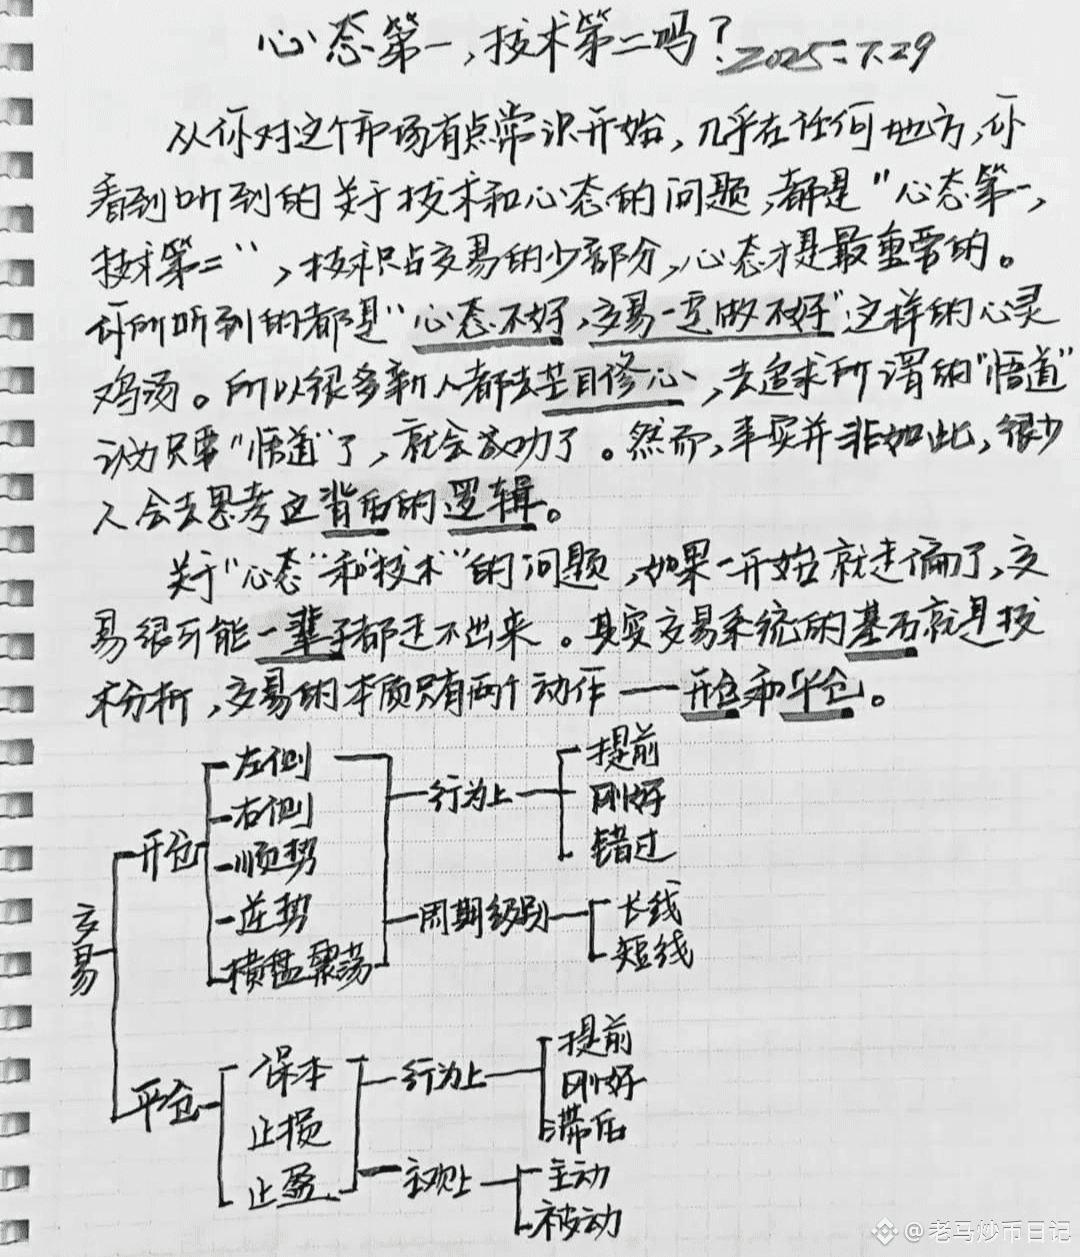 心态第一,技术第二吗? 2025=7.29
从你对这个市场有点常识开始,几乎在任何地方,你
看到听到的关于技术和心态的问题,都是"心态第一,
技术第二",技术只占交易的少部分,心态才是最重要的。
你所听到的都是"心态不好,交易一定做不好"这样的心灵
鸡汤。所以很多新人都去盲目修心,去追求所谓的"悟道"
认为只要"悟道"了,就会成功了。然而,事实并非如此,很少
人会去思考这背后的逻辑。
关于"心态"和"技术"的问题,如果一开始就走偏了,交
易很可能一辈子都走不出来。其实交易系统的基石就是技
术分析,交易的本质只有两个动作——开仓和平仓。
交易
开仓
左侧
右侧
顺势
逆势
横盘震荡
行为上
提前
刚好
错过
周期级别
长线
短线
平仓
保本
止损
止盈
行为上
提前
刚好
滞后
主观上
主动
被动
@老马炒币日记